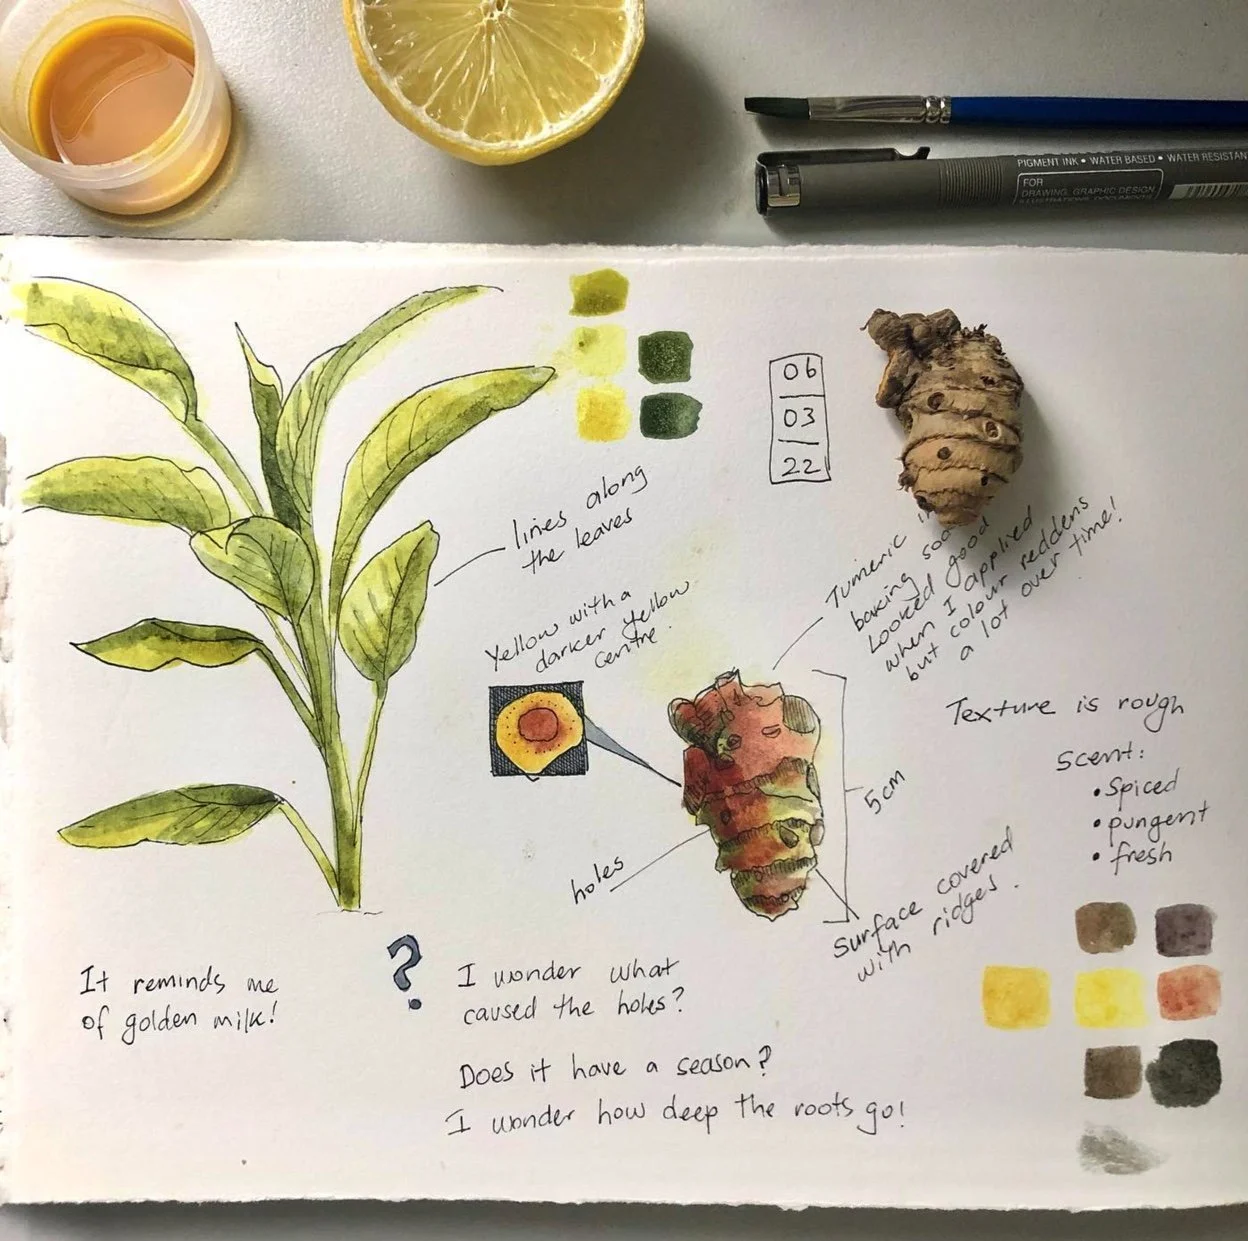 PIGMENT INK • WATER BASED • WATER RESISTAN
FOR
DRAWING, GRAPHIC DESIGN,
ILLUSTRATIONS, DOCUMENTS
06
03
22
lines along
the leaves
Yellow with a
darker yellow
centre.
Tumeric "
baking soda
Looked good
when I applied
but colour reddens
a lot over time!
Texture is rough
Scent:
• Spiced
• pungent
• fresh
5cm
holes
Surface covered
with ridges.
It reminds me
of golden milk!
?
I wonder what
caused the holes?
Does it have a season?
I wonder how deep the roots go!